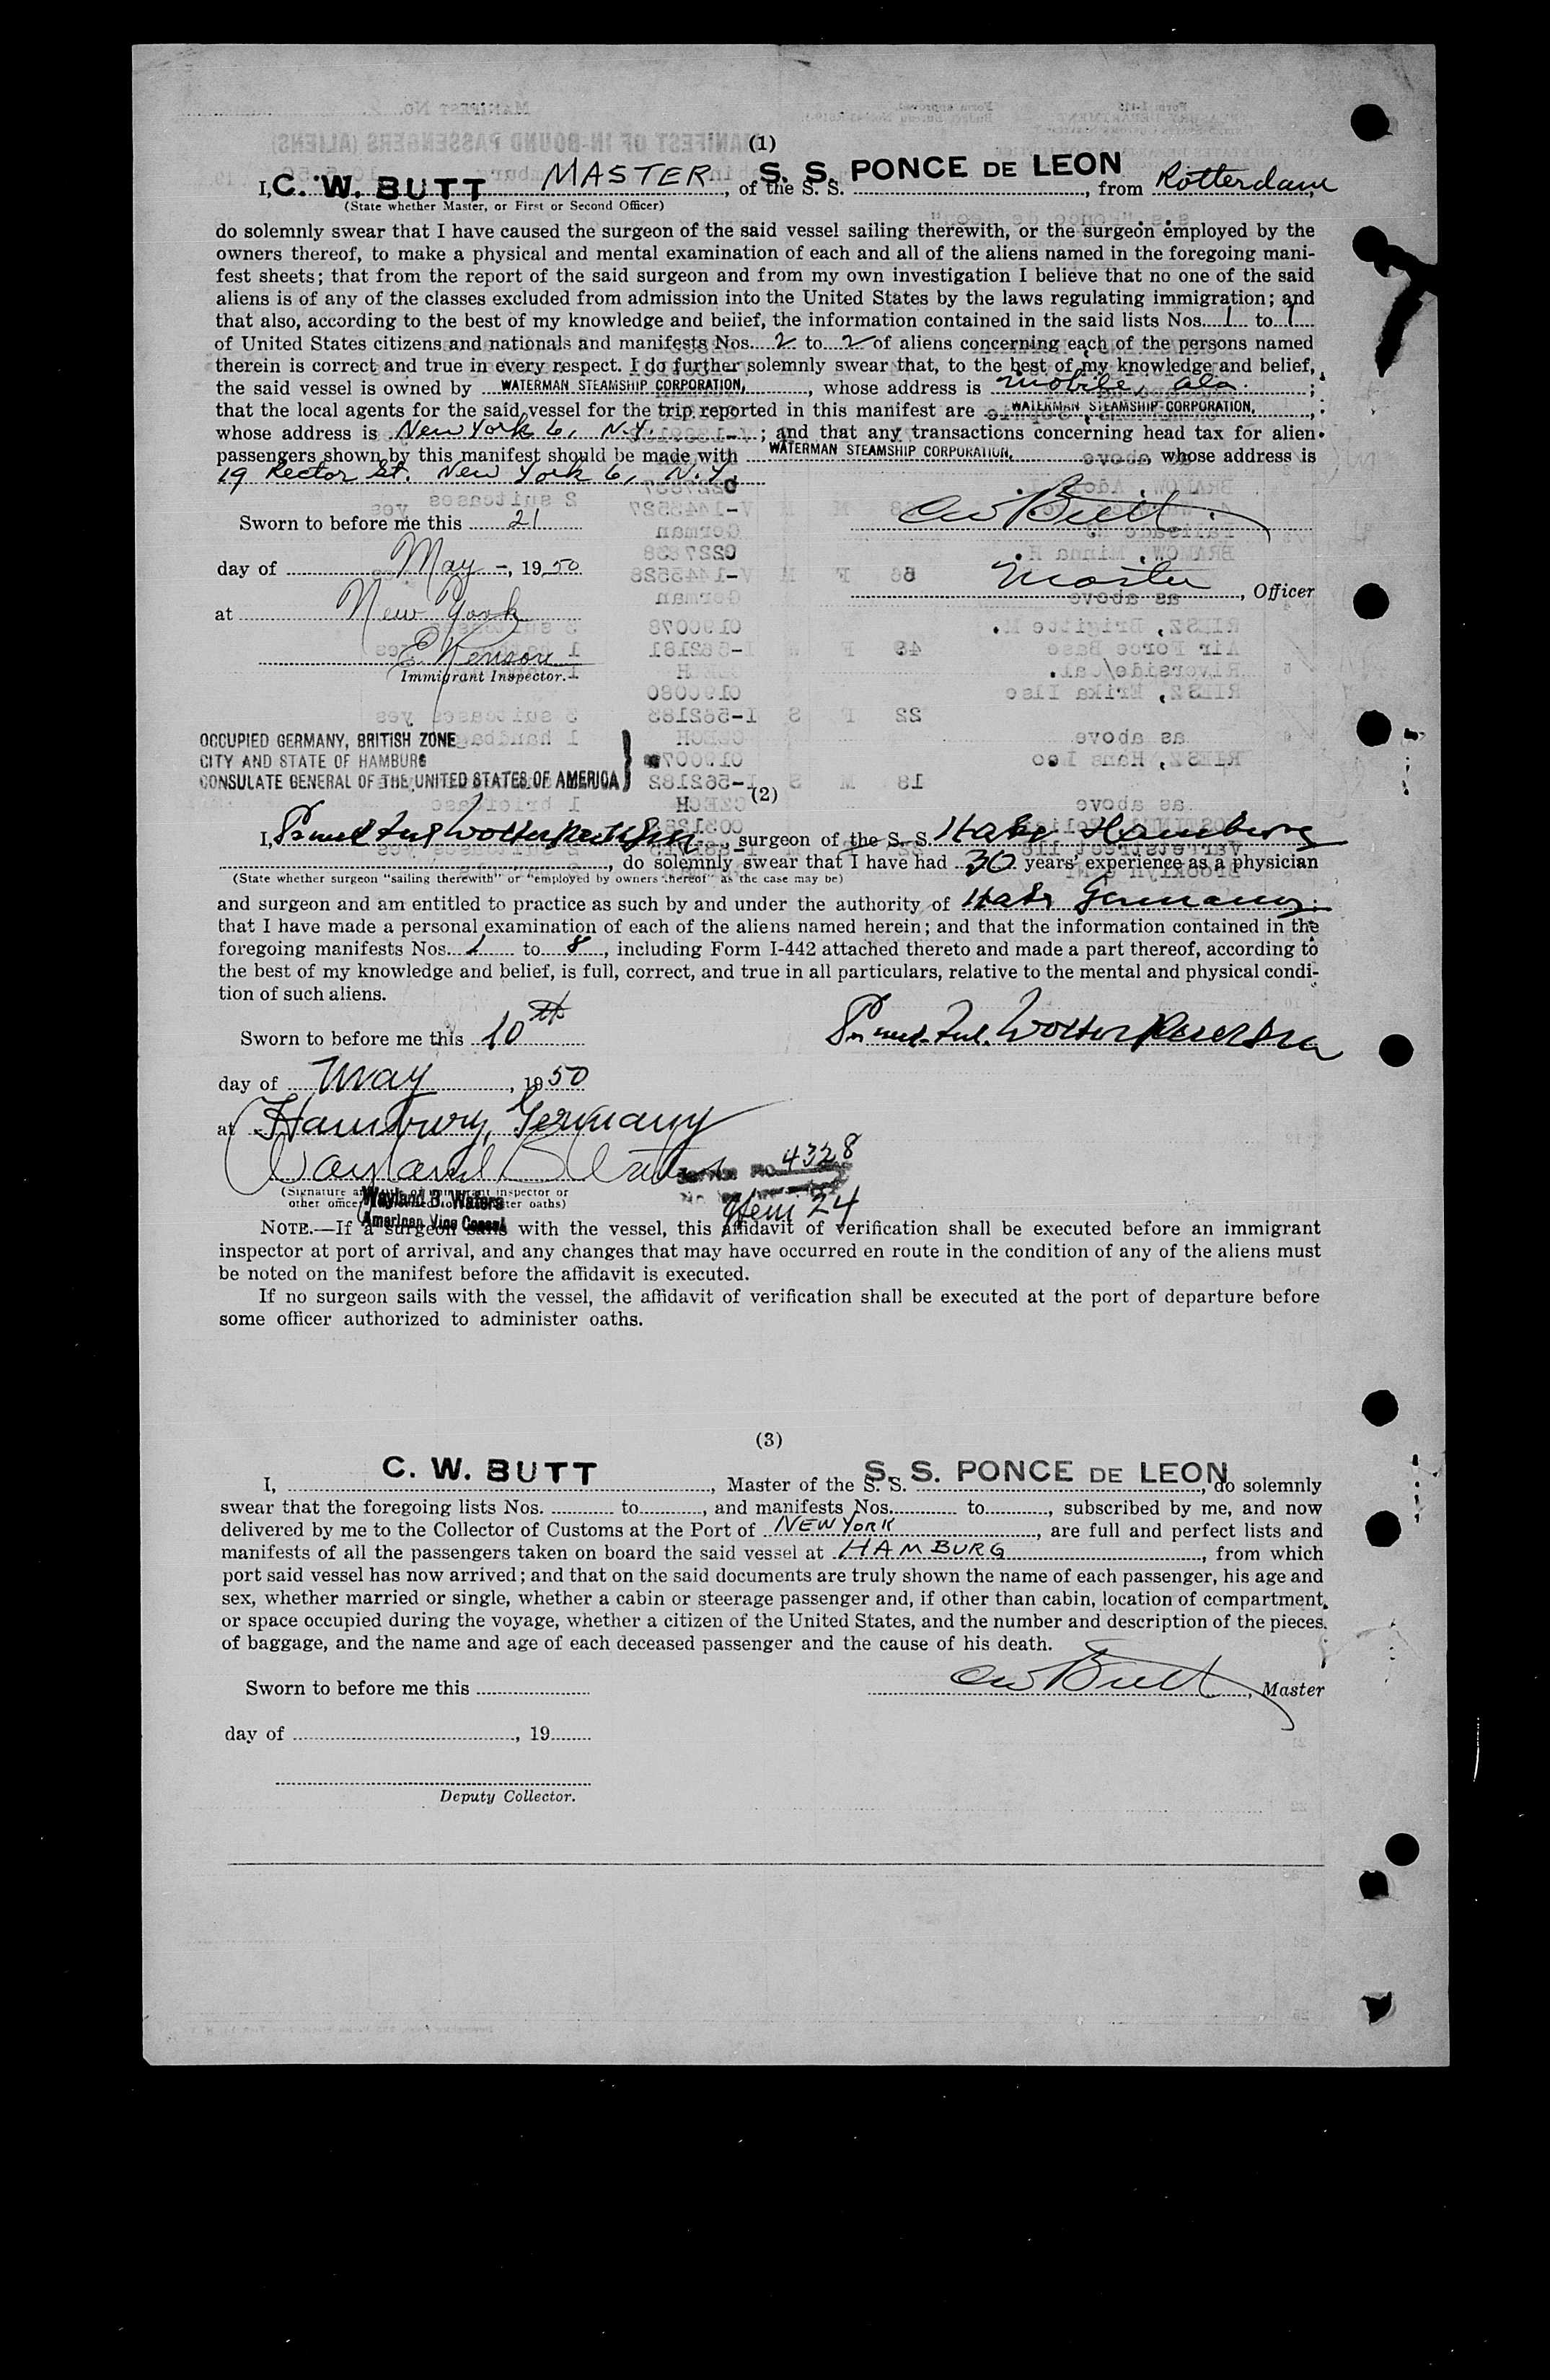 (1)
I, C. W. BUTT MASTER, of the S. S. S. S. PONCE DE LEON, from Rotterdam,
(State whether Master, or First or Second Officer)
do solemnly swear that I have caused the surgeon of the said vessel sailing therewith, or the surgeon employed by the
owners thereof, to make a physical and mental examination of each and all of the aliens named in the foregoing mani-
fest sheets; that from the report of the said surgeon and from my own investigation I believe that no one of the said
aliens is of any of the classes excluded from admission into the United States by the laws regulating immigration; and
that also, according to the best of my knowledge and belief, the information contained in the said lists Nos. 1 to 1
of United States citizens and nationals and manifests Nos. 2 to 2 of aliens concerning each of the persons named
therein is correct and true in every respect. I do further solemnly swear that, to the best of my knowledge and belief,
the said vessel is owned by WATERMAN STEAMSHIP CORPORATION, whose address is Mobile, Ala. ;
that the local agents for the said vessel for the trip reported in this manifest are WATERMAN STEAMSHIP CORPORATION,
whose address is New York 6, N.Y. ; and that any transactions concerning head tax for alien
passengers shown by this manifest should be made with WATERMAN STEAMSHIP CORPORATION, whose address is
19 Rector St. New York 6, N.Y.
Sworn to before me this 21 CW Butt
day of May, 1950 Master, Officer
at New York
Immigrant Inspector.
OCCUPIED GERMANY, BRITISH ZONE
CITY AND STATE OF HAMBURG
CONSULATE GENERAL OF THE UNITED STATES OF AMERICA }
(2)
I, surgeon of the S. S. Hamburg
, do solemnly swear that I have had 30 years' experience as a physician
(State whether surgeon "sailing therewith" or "employed by owners thereof" as the case may be)
and surgeon and am entitled to practice as such by and under the authority of Germany;
that I have made a personal examination of each of the aliens named herein; and that the information contained in the
foregoing manifests Nos. to 8, including Form I-442 attached thereto and made a part thereof, according to
the best of my knowledge and belief, is full, correct, and true in all particulars, relative to the mental and physical condi-
tion of such aliens.
Sworn to before me this 10th
day of May, 1950
at Hamburg, Germany
Wayland B. Waters
Service No. 4328
Item 24
(Signature and title of immigrant inspector or
other officer authorized to administer oaths)
Wayland B. Waters
American Vice Consul
NOTE.—If a surgeon sails with the vessel, this affidavit of verification shall be executed before an immigrant
inspector at port of arrival, and any changes that may have occurred en route in the condition of any of the aliens must
be noted on the manifest before the affidavit is executed.
If no surgeon sails with the vessel, the affidavit of verification shall be executed at the port of departure before
some officer authorized to administer oaths.
(3)
I, C. W. BUTT, Master of the S. S. S. S. PONCE DE LEON, do solemnly
swear that the foregoing lists Nos. to, and manifests Nos. to, subscribed by me, and now
delivered by me to the Collector of Customs at the Port of NEW YORK, are full and perfect lists and
manifests of all the passengers taken on board the said vessel at HAMBURG, from which
port said vessel has now arrived; and that on the said documents are truly shown the name of each passenger, his age and
sex, whether married or single, whether a cabin or steerage passenger and, if other than cabin, location of compartment
or space occupied during the voyage, whether a citizen of the United States, and the number and description of the pieces
of baggage, and the name and age of each deceased passenger and the cause of his death.
Sworn to before me this CW Butt, Master
day of , 19
Deputy Collector.